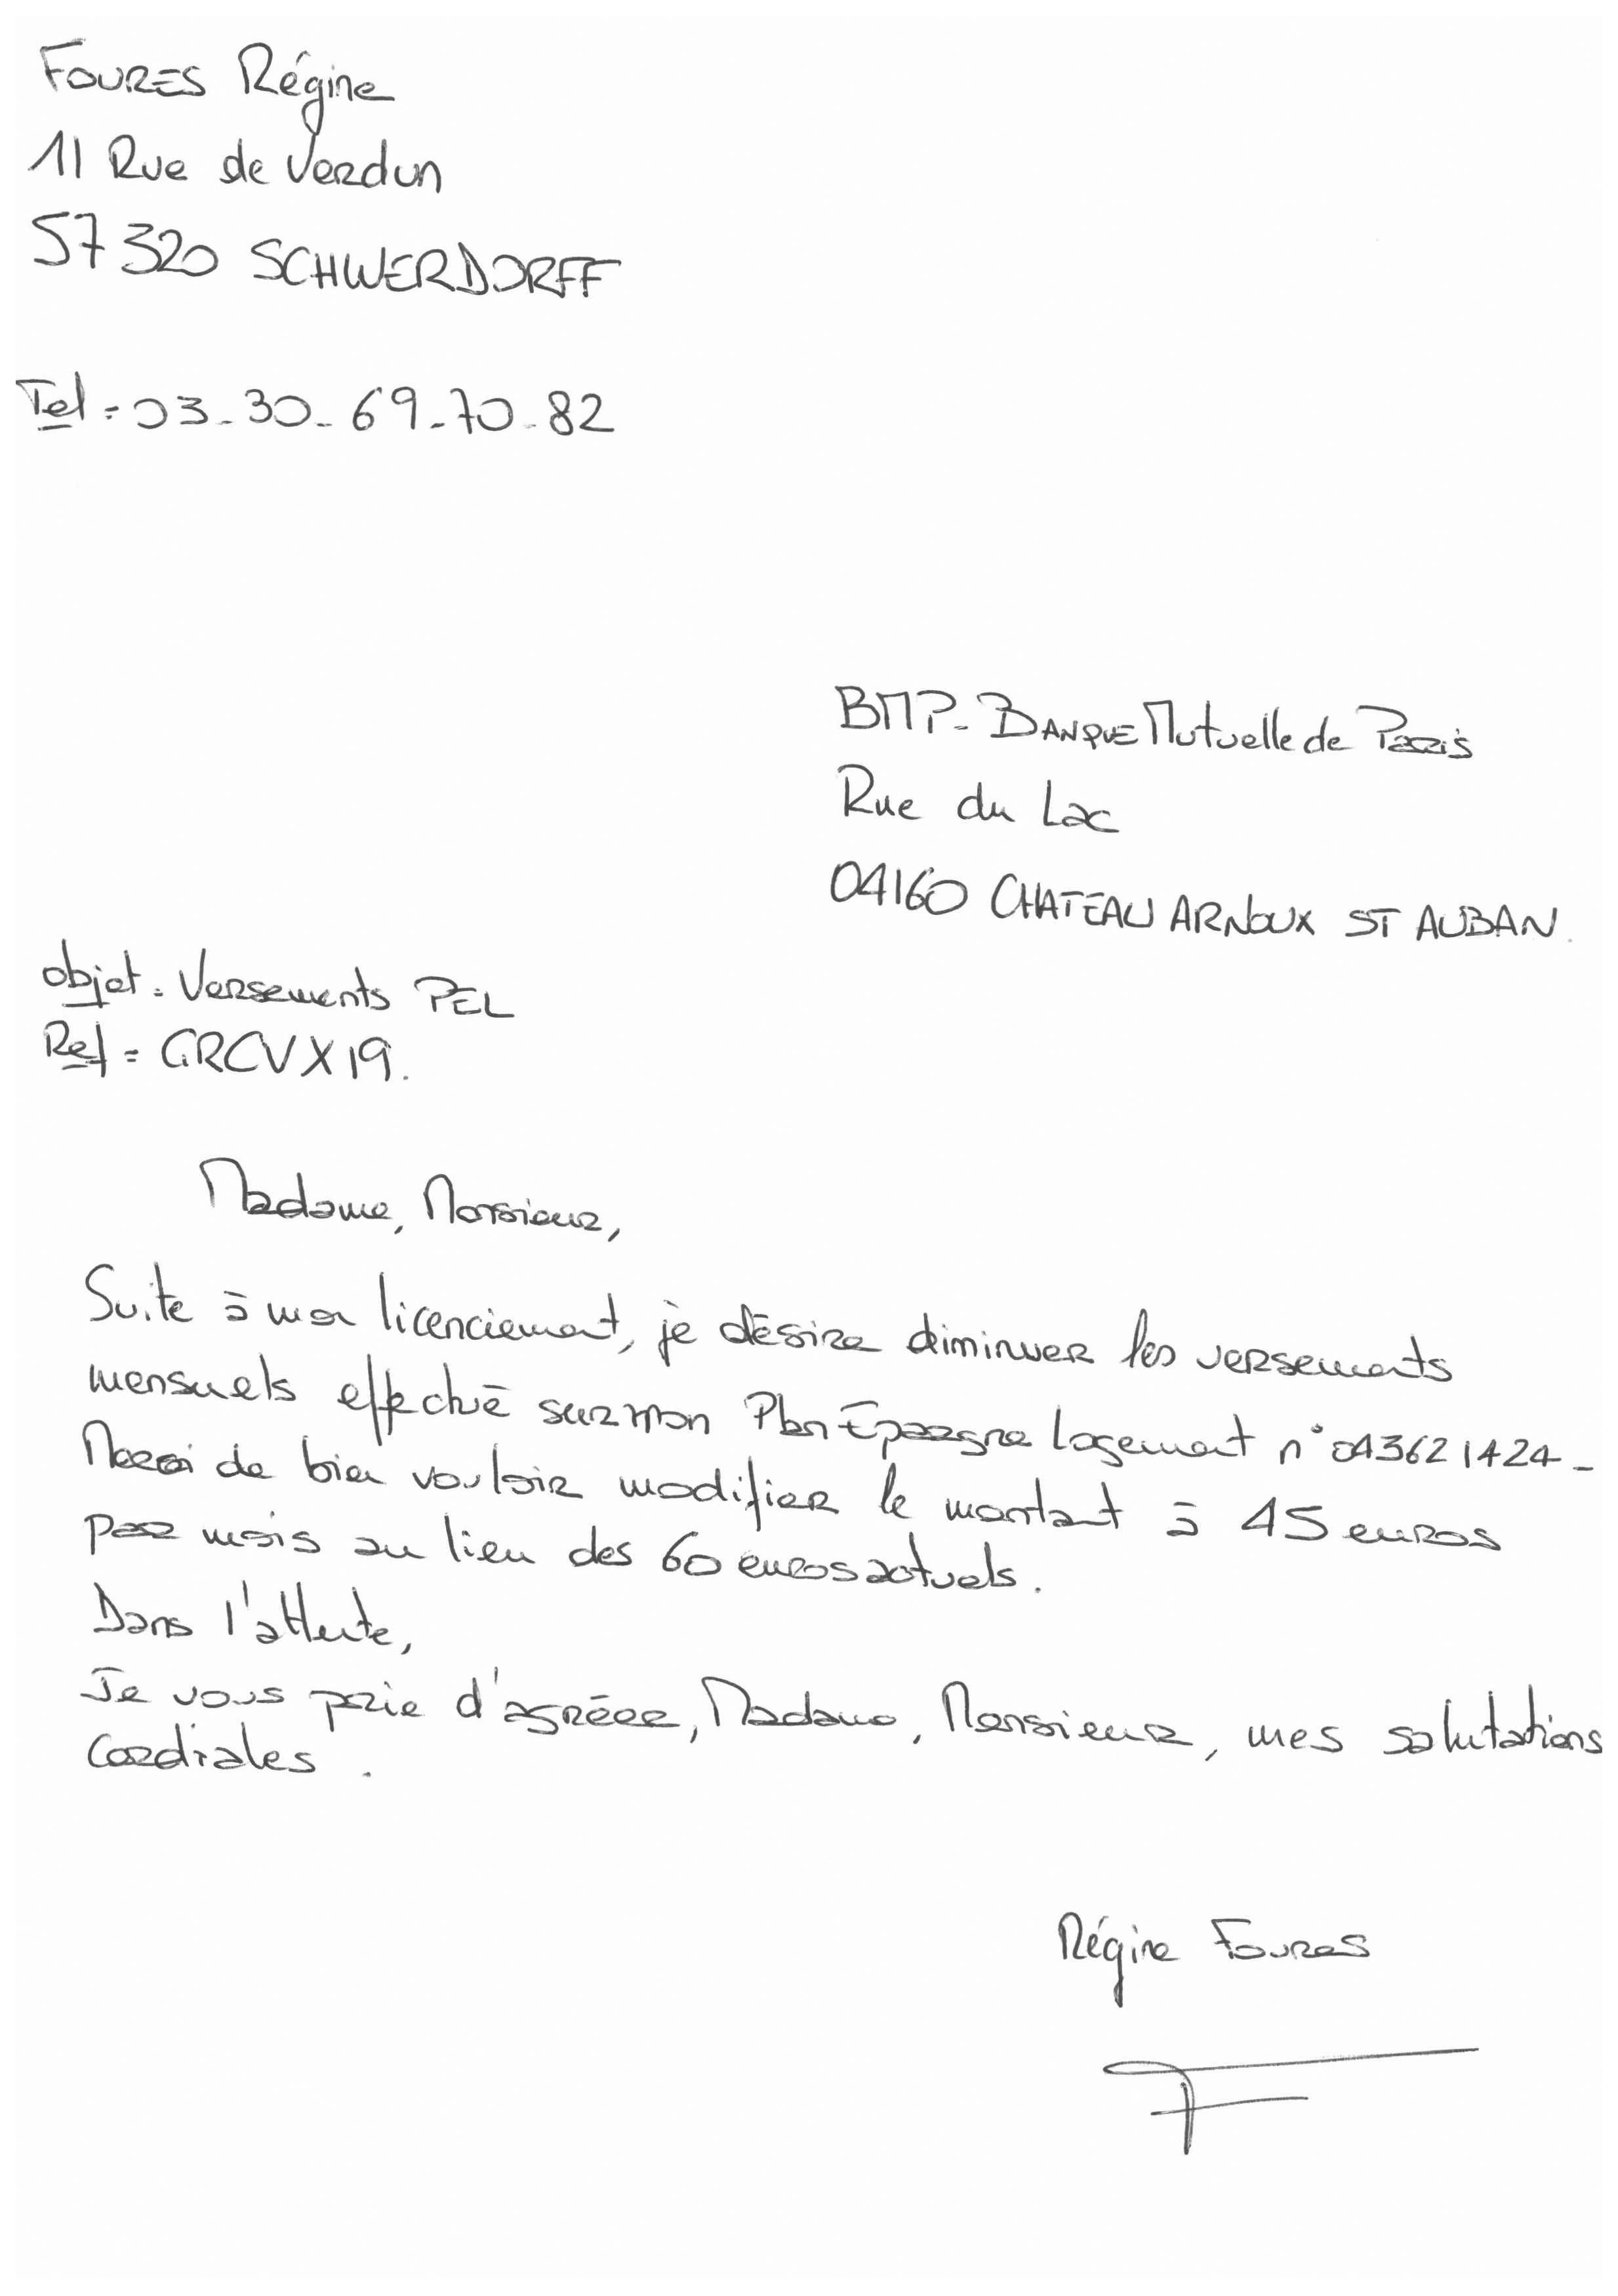 FOURES Régine
11 Rue de Verdun
57320 SCHWERDORFF
Tel = 03-30-69-70-82
BMP- BANQUE Mutuelle de Paris
Rue du Lac
04160 CHATEAU ARNOUX ST AUBAN.
objet = Versements PEL
Ref = GRCVX19.
Madame, Monsieur,
Suite à mon licenciement, je désire diminuer les versements
mensuels effectué sur mon Plan Epargne Logement n° 043621424-
Merci de bien vouloir modifier le montant à 45 euros
par mois au lieu des 60 euros actuels.
Dans l'attente,
Je vous prie d'agréer, Madame, Monsieur, mes salutations
cordiales.
Régine Foures